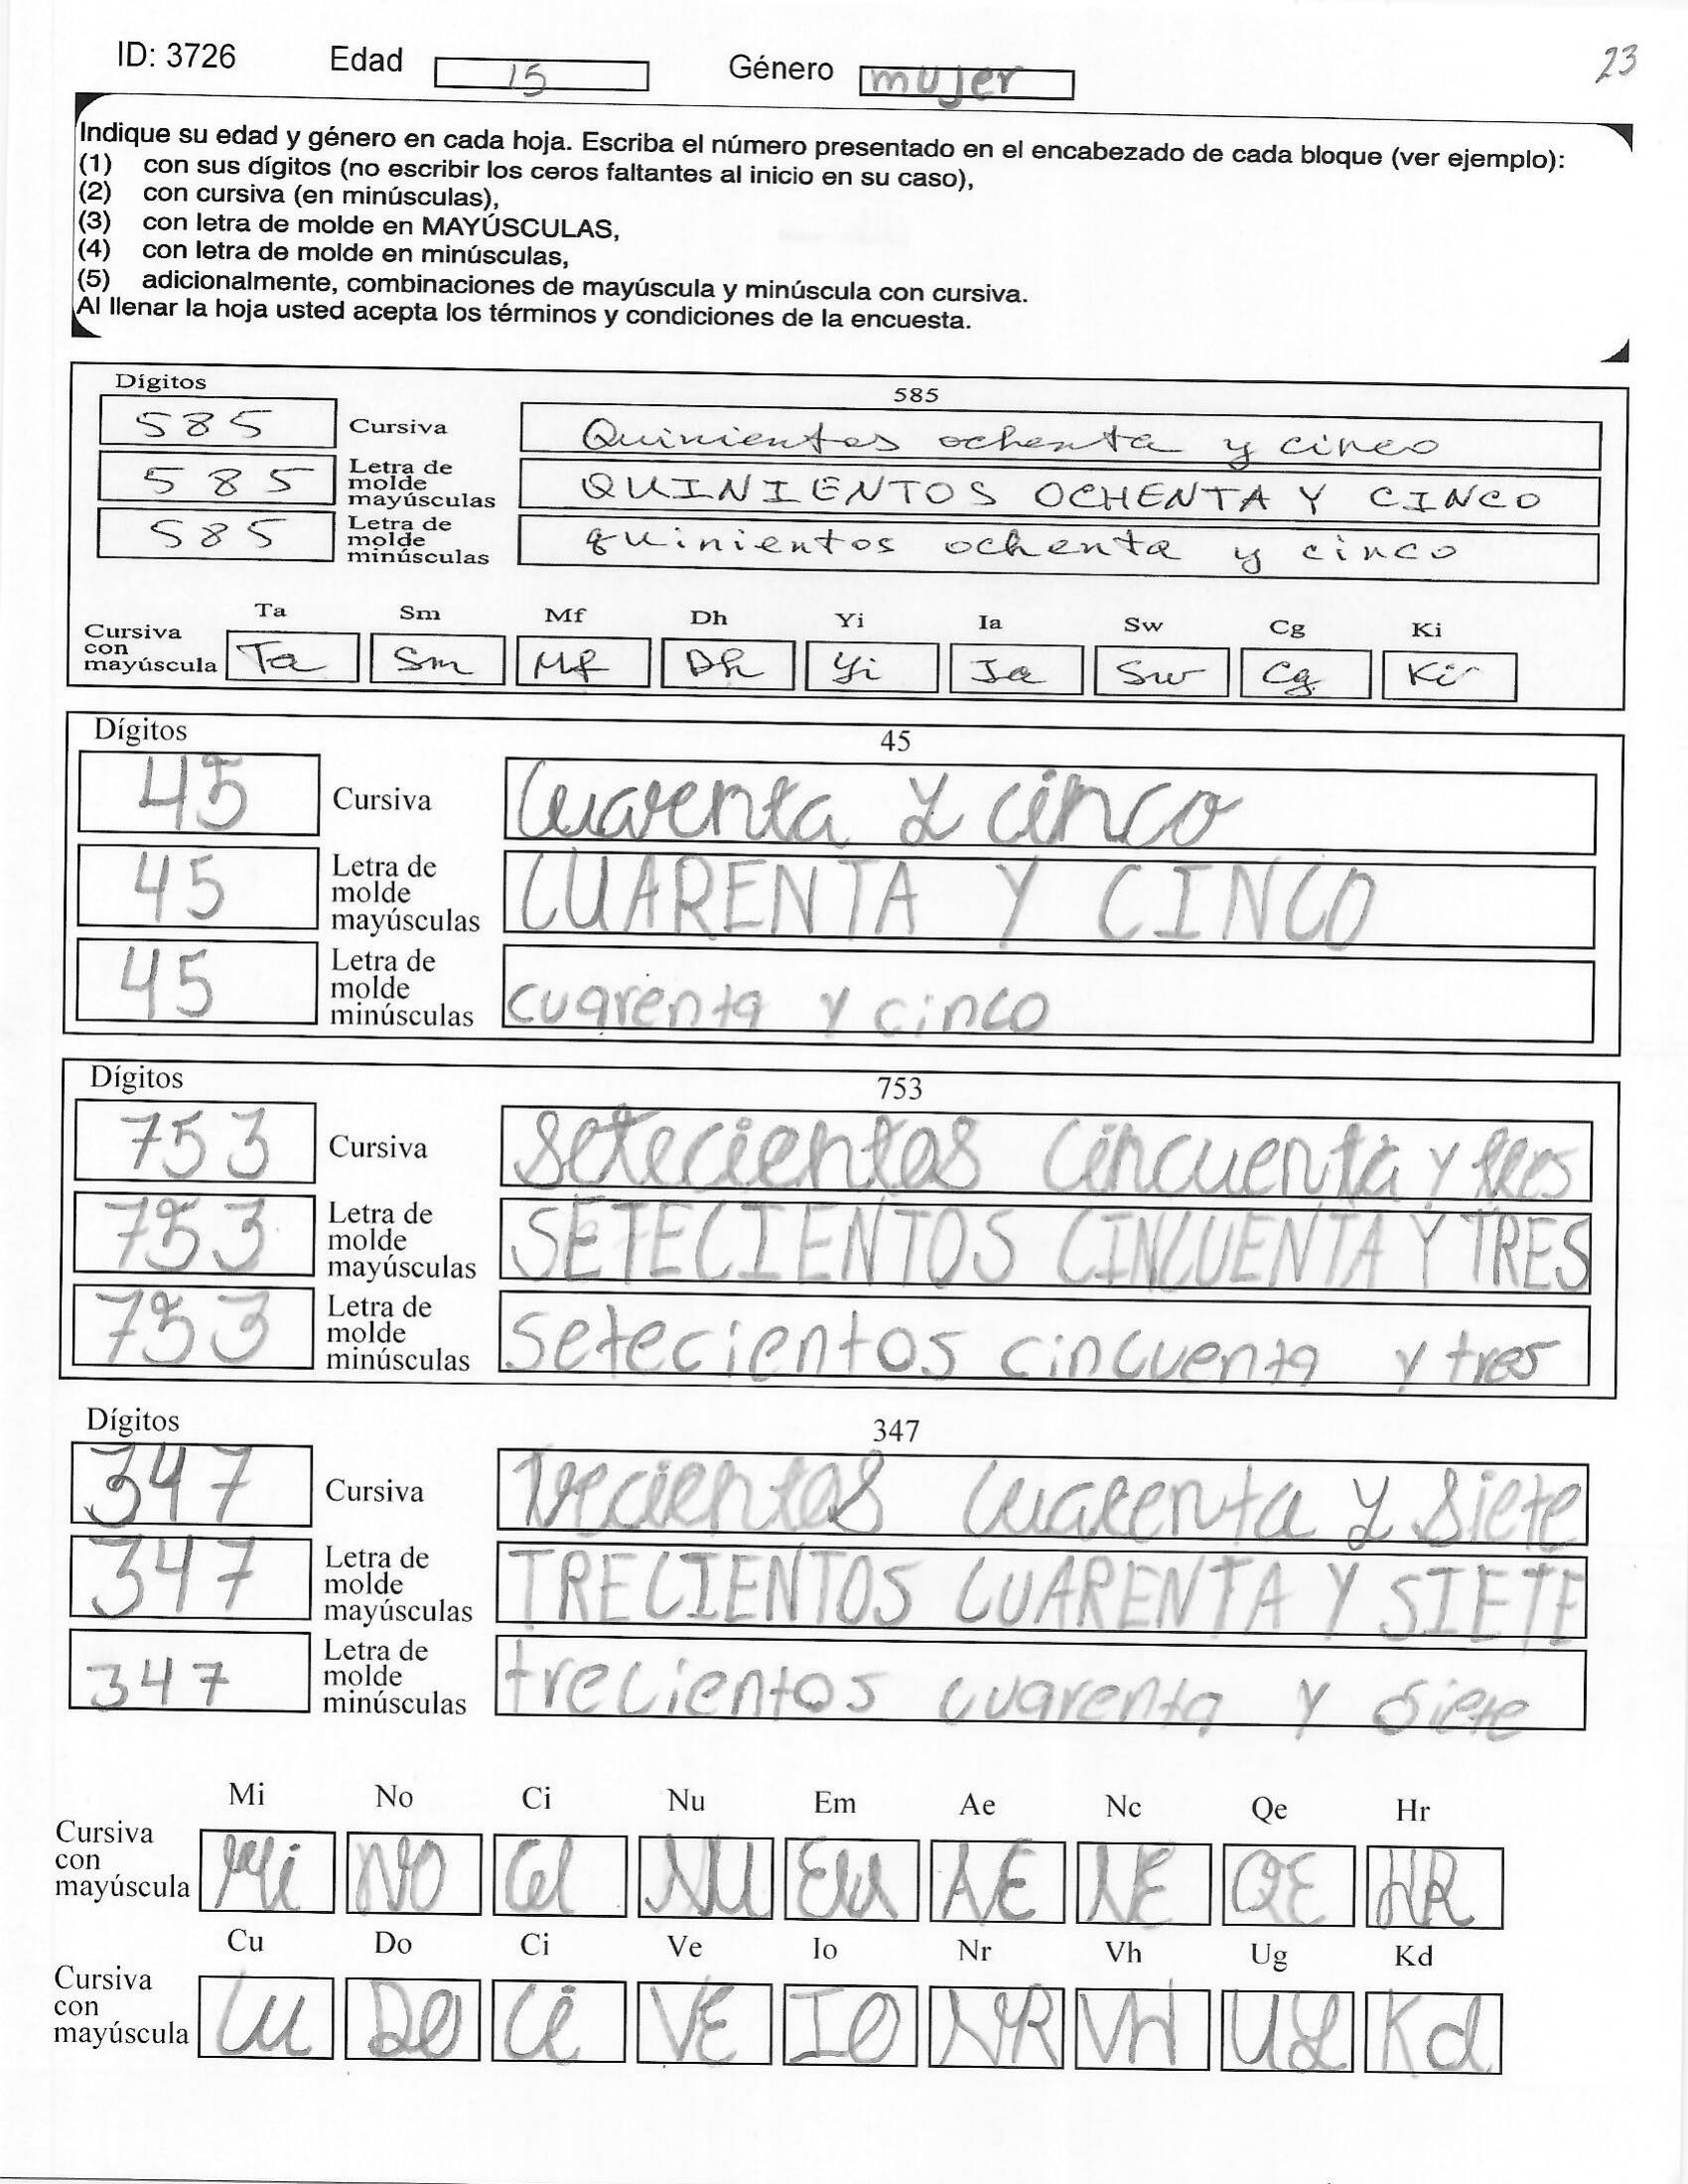 ID: 3726 Edad 15 Género mujer 23
Indique su edad y género en cada hoja. Escriba el número presentado en el encabezado de cada bloque (ver ejemplo):
(1) con sus dígitos (no escribir los ceros faltantes al inicio en su caso),
(2) con cursiva (en minúsculas),
(3) con letra de molde en MAYÚSCULAS,
(4) con letra de molde en minúsculas,
(5) adicionalmente, combinaciones de mayúscula y minúscula con cursiva.
Al llenar la hoja usted acepta los términos y condiciones de la encuesta.
Dígitos 585
585 Cursiva Quinientos ochenta y cinco
585 Letra de molde mayúsculas QUINIENTOS OCHENTA Y CINCO
585 Letra de molde minúsculas quinientos ochenta y cinco
Ta Sm Mf Dh Yi Ia Sw Cg Ki
Cursiva con mayúscula Ta Sm Mf Dh Yi Ia Sw Cg Ki
Dígitos 45
45 Cursiva Cuarenta y cinco
45 Letra de molde mayúsculas CUARENTA Y CINCO
45 Letra de molde minúsculas cuarenta y cinco
Dígitos 753
753 Cursiva Setecientos cincuenta y tres
753 Letra de molde mayúsculas SETECIENTOS CINCUENTA Y TRES
753 Letra de molde minúsculas setecientos cincuenta y tres
Dígitos 347
347 Cursiva Trecientos cuarenta y siete
347 Letra de molde mayúsculas TRECIENTOS CUARENTA Y SIETE
347 Letra de molde minúsculas trecientos cuarenta y siete
Mi No Ci Nu Em Ae Nc Qe Hr
Cursiva con mayúscula Mi NO Ci NU EM AE NE QE HR
Cu Do Ci Ve Io Nr Vh Ug Kd
Cursiva con mayúscula Cu DO Ci VE IO NR VH Kd